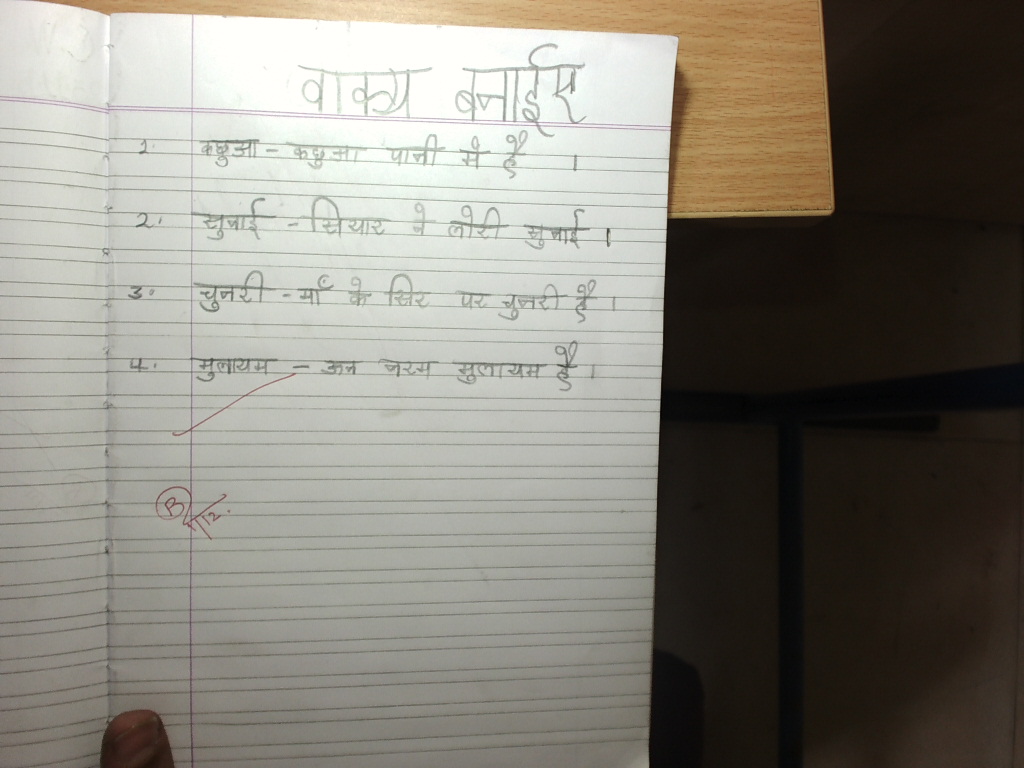 वाक्य बनाईए
1. कछुआ - कछुआ पानी मे है ।
2. सुनाई - सियार ने लोरी सुनाई ।
3. चुनरी - माँ के सिर पर चुनरी है ।
4. मुलायम - ऊन नरम मुलायम है ।
B